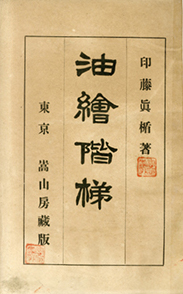 印藤眞楯著
油繪階梯
東京　嵩山房藏版